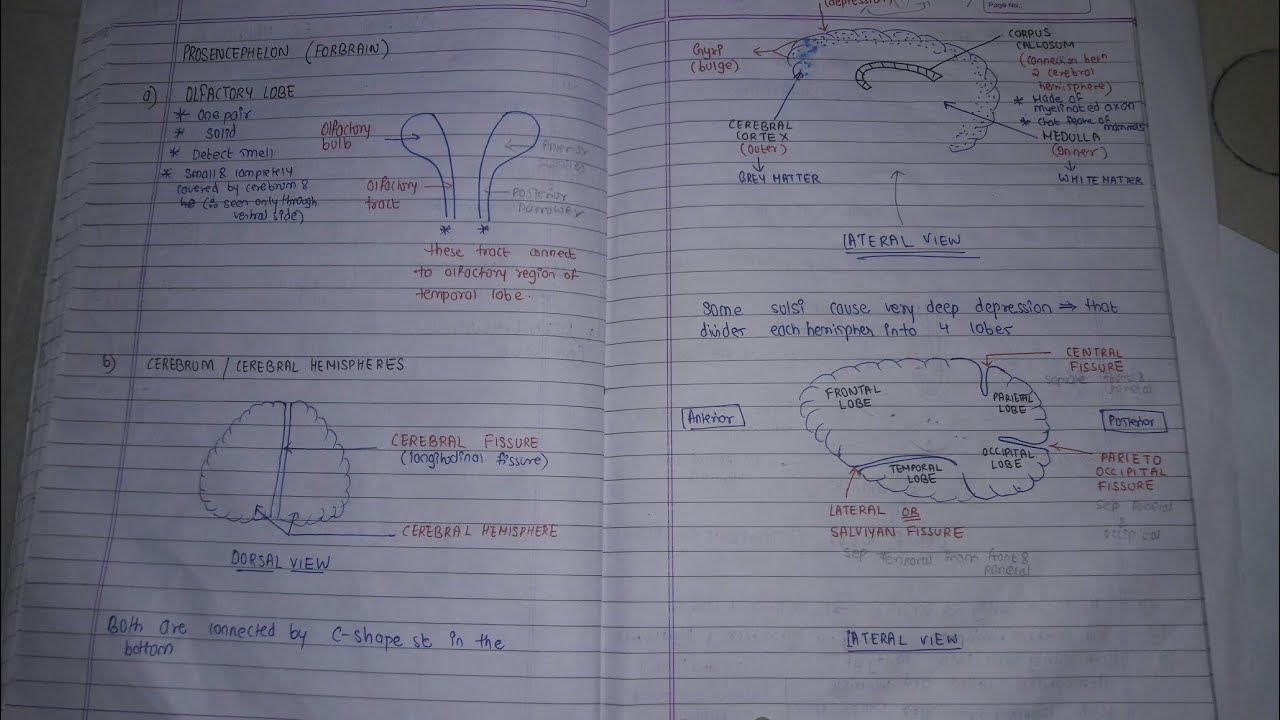 PROSENCEPHELON (FORBRAIN)
a) OLFACTORY LOBE
* One pair
* Solid
* Detect smell
* Small & completely
covered by cerebrum &
(is seen only through
ventral side)
Olfactory
bulb
Olfactory
tract
Anterior
Posterior
narrower
* *
these tract connect
to olfactory region of
temporal lobe.
b) CEREBRUM / CEREBRAL HEMISPHERES
CEREBRAL FISSURE
(longitudinal fissure)
CEREBRAL HEMISPHERE
DORSAL VIEW
Both are connected by C-shape st in the
bottom
Page No.
(depression)
Gyri
(bulge)
CORPUS
CALLOSUM
(connection betn
2 cerebral
hemisphere)
* Made of
myelinated axon
* Chat feature of mammals
CEREBRAL
CORTEX
(outer)
GREY MATTER
MEDULLA
(Inner)
WHITE MATTER
LATERAL VIEW
Some sulsi cause very deep depression ⇒ that
divider each hemispher into 4 lobes
CENTRAL
FISSURE
FRONTAL
LOBE
PARIETAL
LOBE
Anterior
Posterior
OCCIPITAL
LOBE
TEMPORAL
LOBE
PARIETO
OCCIPITAL
FISSURE
LATERAL OR
SALVIYAN FISSURE
Sep Temporal from front &
parietal
LATERAL VIEW